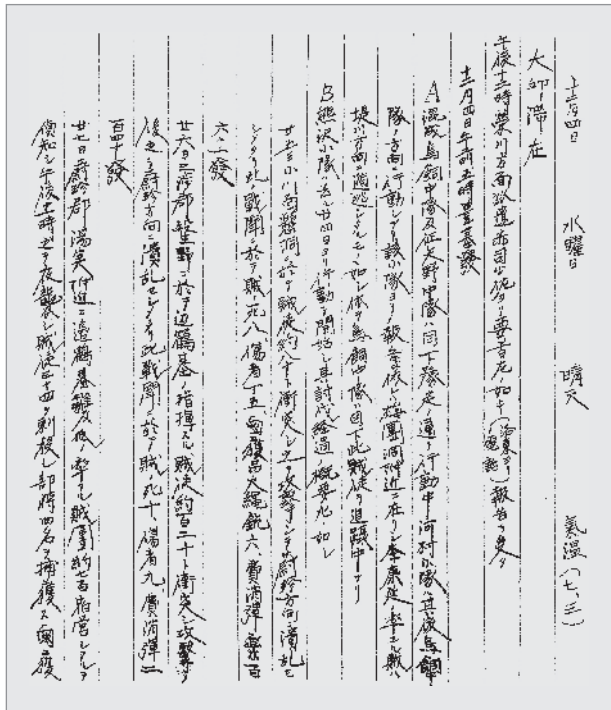 十二月四日　水曜日　晴天　氣温（七、三）
大邱滞在
午後十二時 榮川方面 赤司少佐ヨリ要旨左ノ如キ（ 電話）報告ヲ受ク
十二月四日午前五時豊基發
A 混成鳥飼中隊及征矢野中隊ハ目下豫定ノ通リ行動中河村小隊ハ其後鳥飼
隊ノ方面ニ行動シアリ該小隊ヨリノ報告ニ依レハ 洞附近ニ在リシ李康年ノ率ユル賊ハ
堤川方面ニ遁逃シタルモノノ如シ依テ鳥飼中隊ハ目下此賊徒ヲ追躡中ナリ
B 熊沢小隊ハ去ル廿四日ヨリ行動ヲ開始シ其討伐経過ノ概要左ノ如シ
廿五日小川面 洞ニ於テ賊徒約八十ト衝突シ之ヲ攻撃シテ 方向ニ潰乱セ
シメタリ此ノ戦闘ニ於テ賊ノ死八 傷者十五 鹵獲品火縄銃六、費消弾薬百
六十一發
廿六日三 郡 野ニ於テ辺鶴基ノ指揮スル賊徒約百二十ト衝突シ攻撃ノ
後之ヲ 方向ニ潰乱セシメタリ此戦闘ニ於テ賊ノ死十 傷者九、費消弾二
百四十發
廿七日 郡 附近ニ辺鶴基 及 ノ率ユル賊團約七百宿営シアルヲ
偵知シ午後十一時 夜襲シ賊徒三十四ヲ刺殺シ部将四名ヲ捕獲ス鹵獲